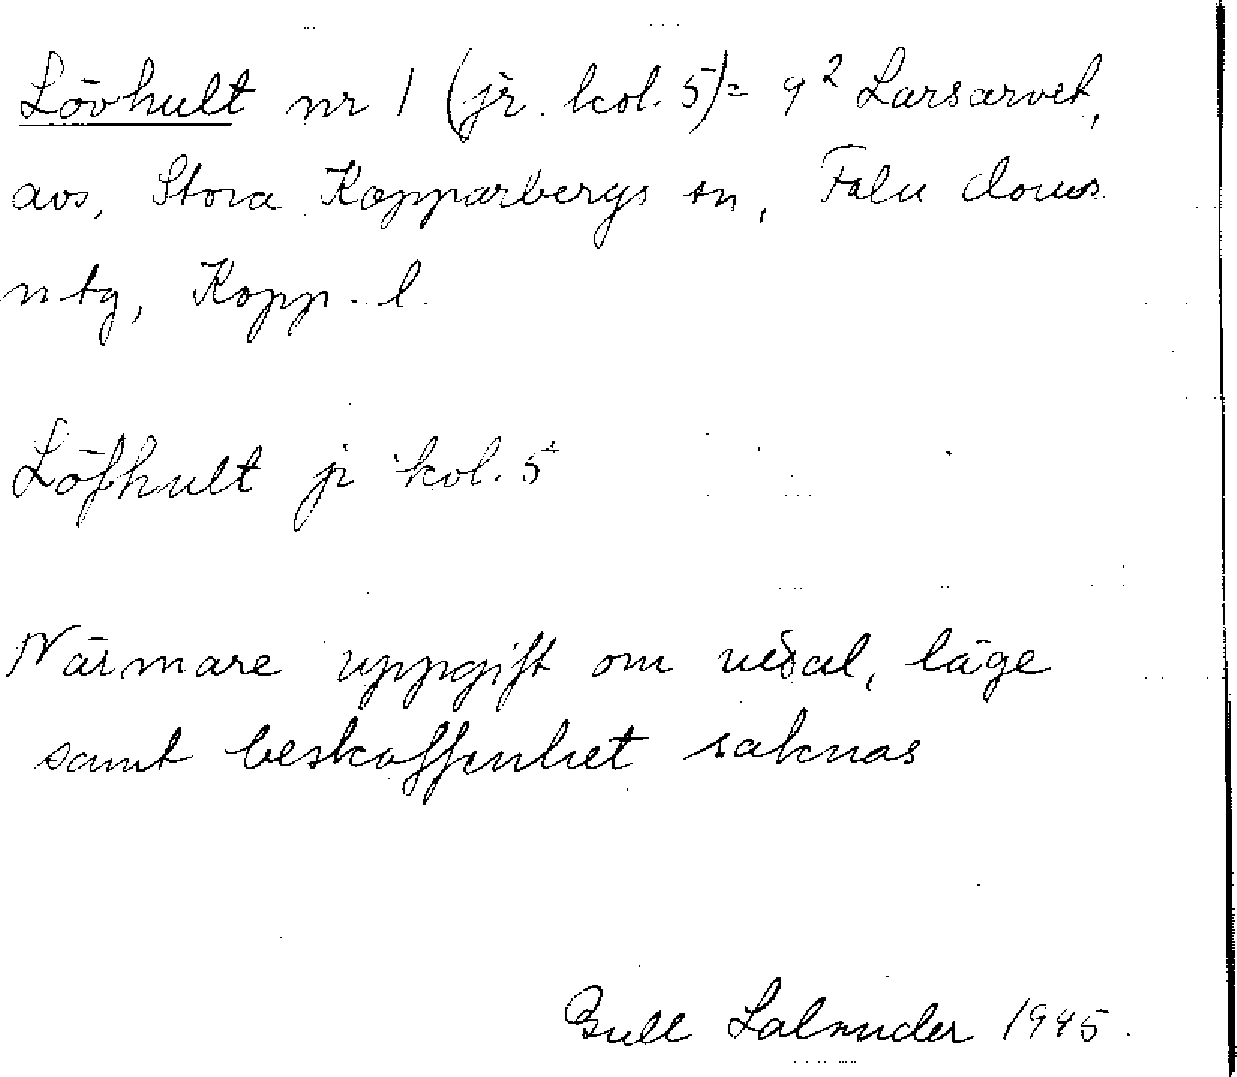 Lövhult nr 1 (jr. kol. 5) = 9² Larsarvet,
avs, Stora Kopparbergs sn, Falu doms
ntg, Kopp. l.
Löfhult jr kol. 5
Närmare uppgift om uttal, läge
samt beskaffenhet saknas
Gull 1945.